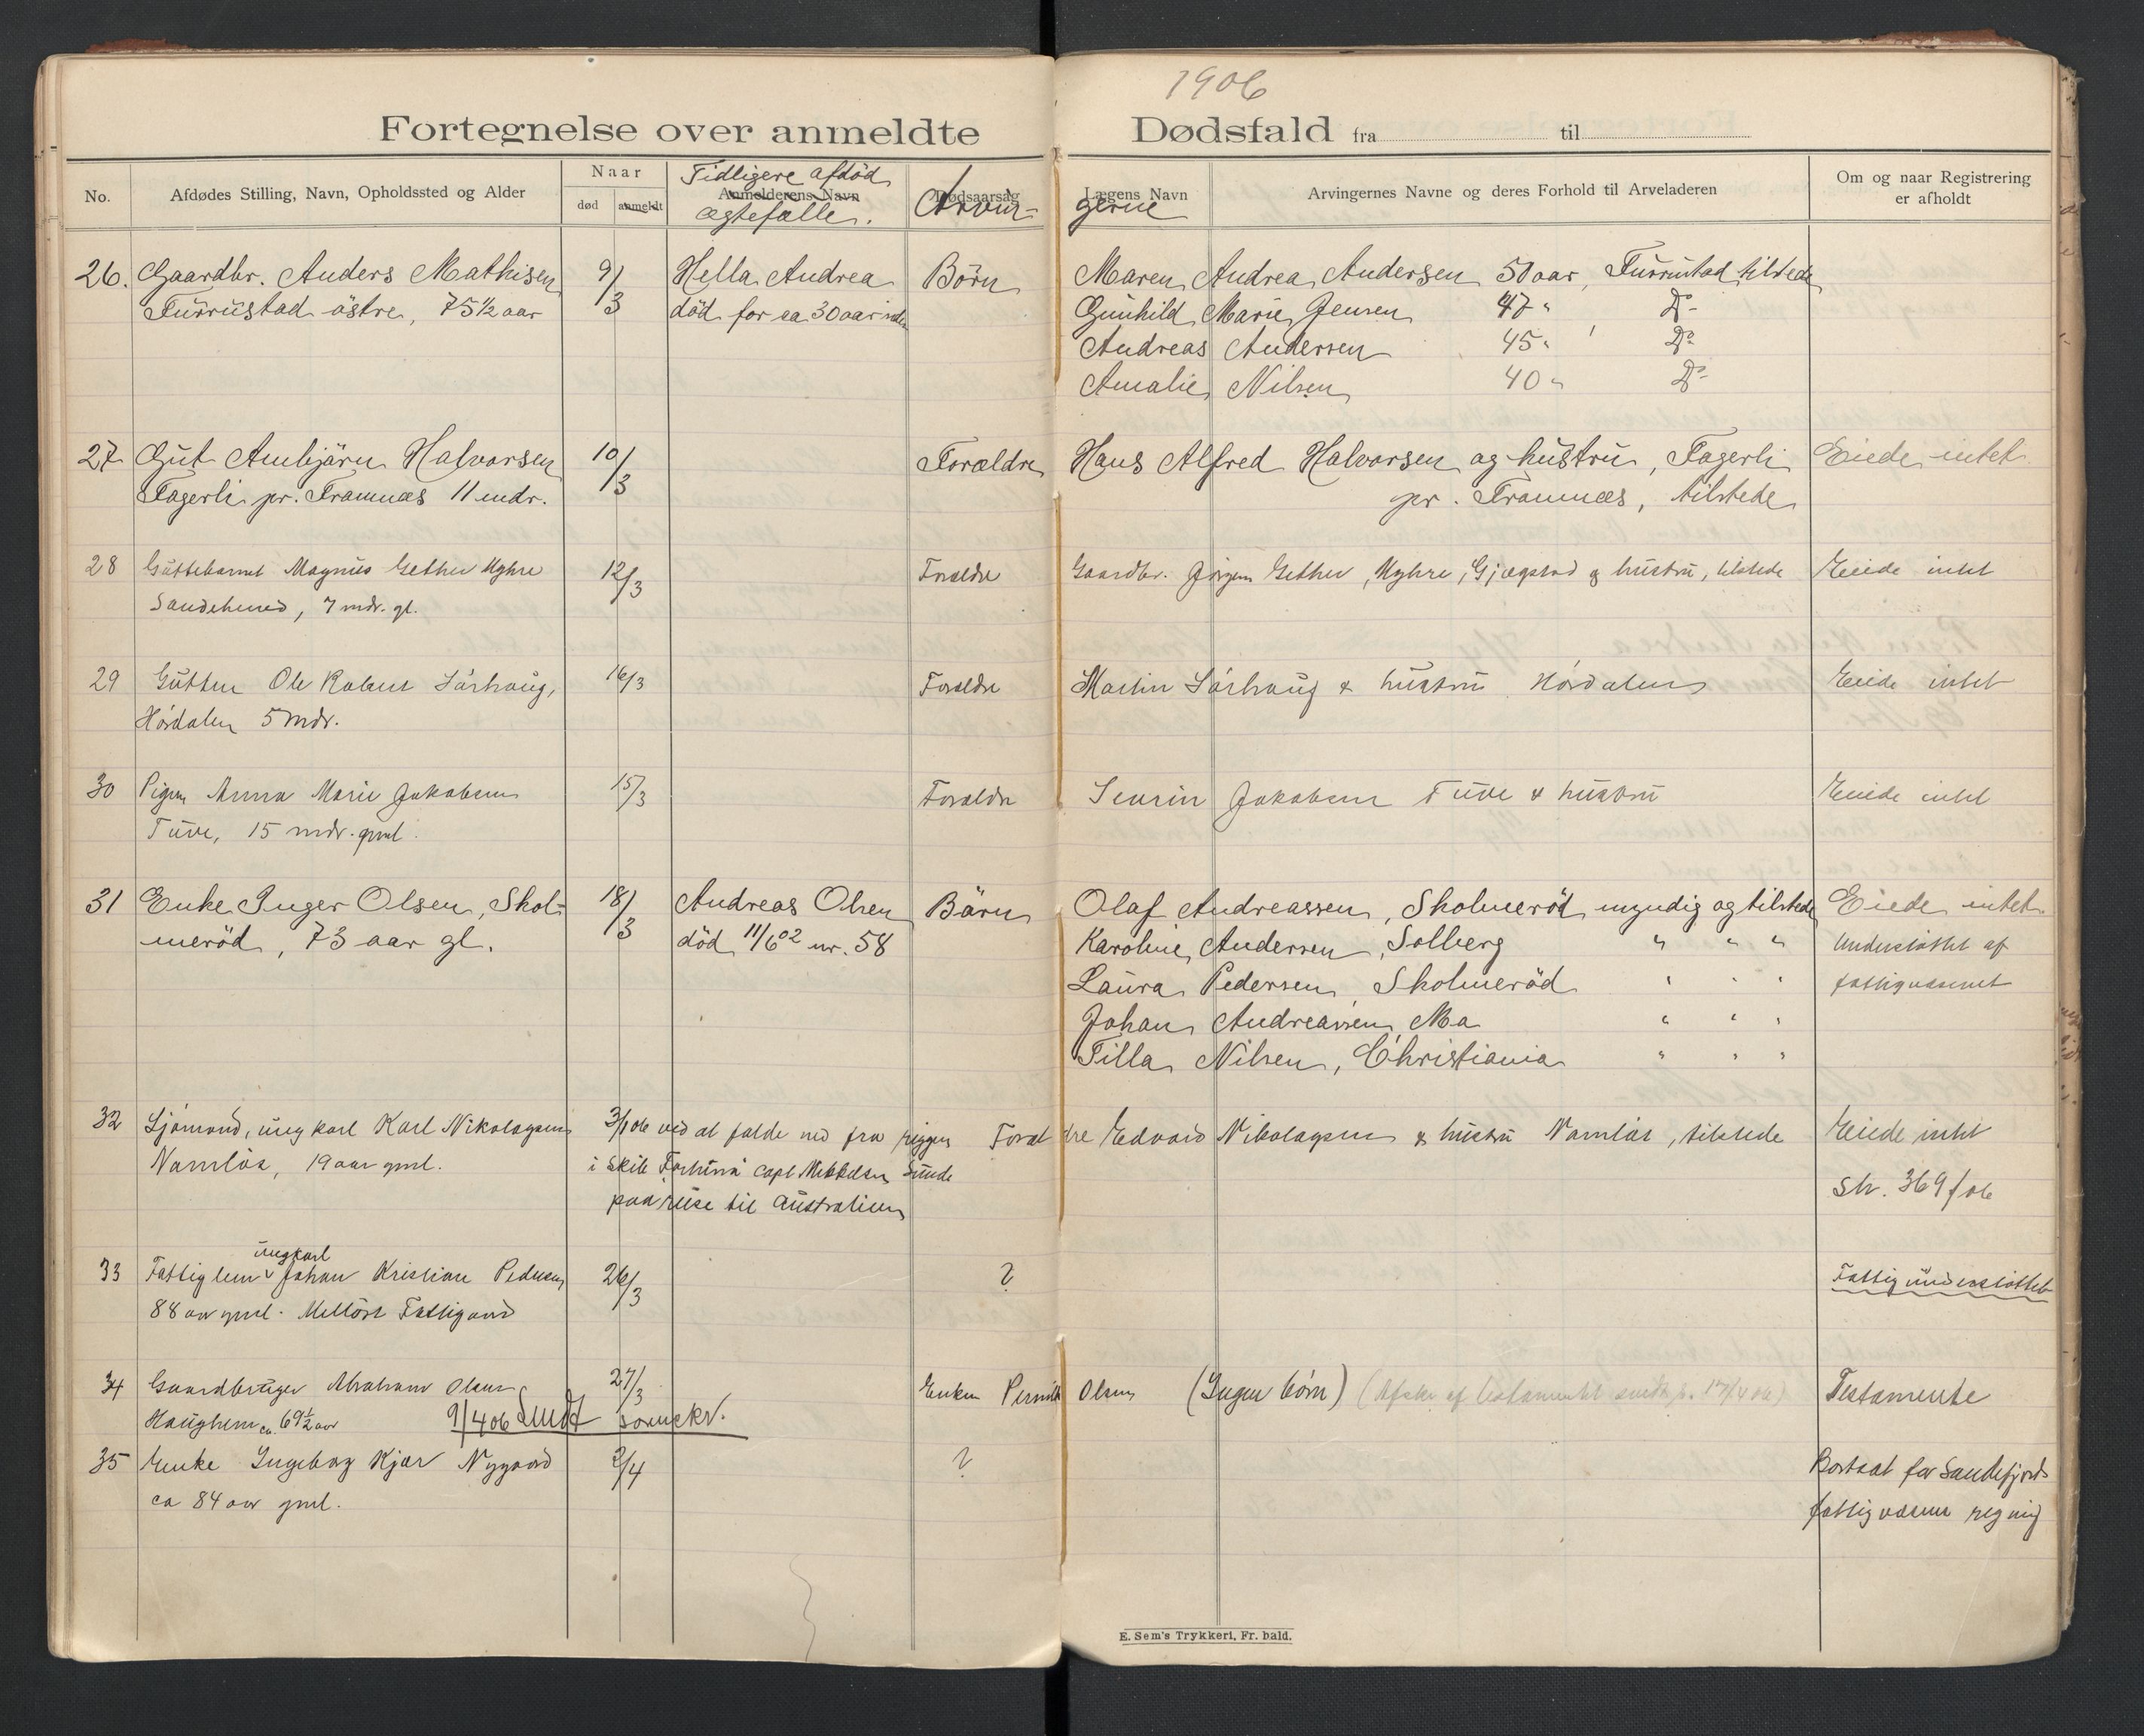 1906
Fortegnelse over anmeldte Dødsfald fra til
No.
Afdødes Stilling, Navn, Opholdssted og Alder
Naar
død
anmeldt
Tidligere afdød
Anmelderens Navn
ægtefælle.
Dødsaarsag
Lægens Navn
Arvin-
gerne
Arvingernes Navne og deres Forhold til Arveladeren
Om og naar Registrering
er afholdt
26. Gaardbr. Anders Mathisen 9/3 Hella Andrea Börn Maren Andrea Andersen 50 aar, Furustad tilstede
Furrustad östre, 75½ aar död for ca 30 aar siden Gunhild Marie Jensen 47 " Do
Andreas Andersen 45 " Do
Amalie Nilsen 40 " Do
27 Gut Arnbjärn Halvorsen 10/3 Forældre Hans Alfred Halvorsen og hustru, Fagerli Eiede intet
Fagerli pr. Framnæs 11 mdr. pr. Framnæs, tilstede
28 Guttebarnet Magnus Gether Myhre 12/3 Forældre Gaardbr. Jörgen Gether Myhre, Gjægstad & hustru, tilstede Eiede intet
7 mdr. gl.
29 Gutten Ole Sörhaug, 16/3 Forældre Martin Sörhaug & hustru Hördalen Eiede intet
Hördalen 5 mdr.
30 Pigen Anna Marie Jakobsen 15/3 Forældre Severin Jakobsen Tuve & hustru Eiede intet
Tuve, 15 mdr. gml.
31 Enke Inger Olsen, Skol- 18/3 Andreas Olsen Bärn Olaf Andreassen, Skolmeröd myndig og tilstede Eiede intet
meröd, 73 aar gl. död 11/6 02 nr. 58 Karoline Andersen, Solberg " " " Understöttet af
Laura Pedersen, Skolmeröd " " " fattigvæsenet
Johan Andreassen, Moa " " "
Tilla Nilsen, Christiania " " "
32 Sjömand, ungkarl Karl Nikolaysen 3/1 06 ved at falde ned fra riggen Forældre Edvard Nikolaysen & hustru Namlös, tilstede Eiede intet
Namlös, 19 aar gml. i skib Fortuna capt. Mikkelsen Sunde Str. 369/06
paa reise til Australien
ungkarl
33 Fattiglem Johan Kristian Pedersen 26/3 ? Fattigunderstöttet
88 aar gml. Fattiggaard
34 Gaardbruger Abraham Olsen 27/3 Enken Pernille Olsen (Ingen börn) (Afskr. af testamentet sendt 17/4 06) Testamente
Haughem ca. 69½ aar 9/4 06 Sendt sorenskr.
35 Enke Ingeborg Kjær Nygaard 2/4 ? Bortsat for Sandefjords
ca 84 aar gml. fattigvæsens regning
E. Sem's Trykkeri, Fr. hald.